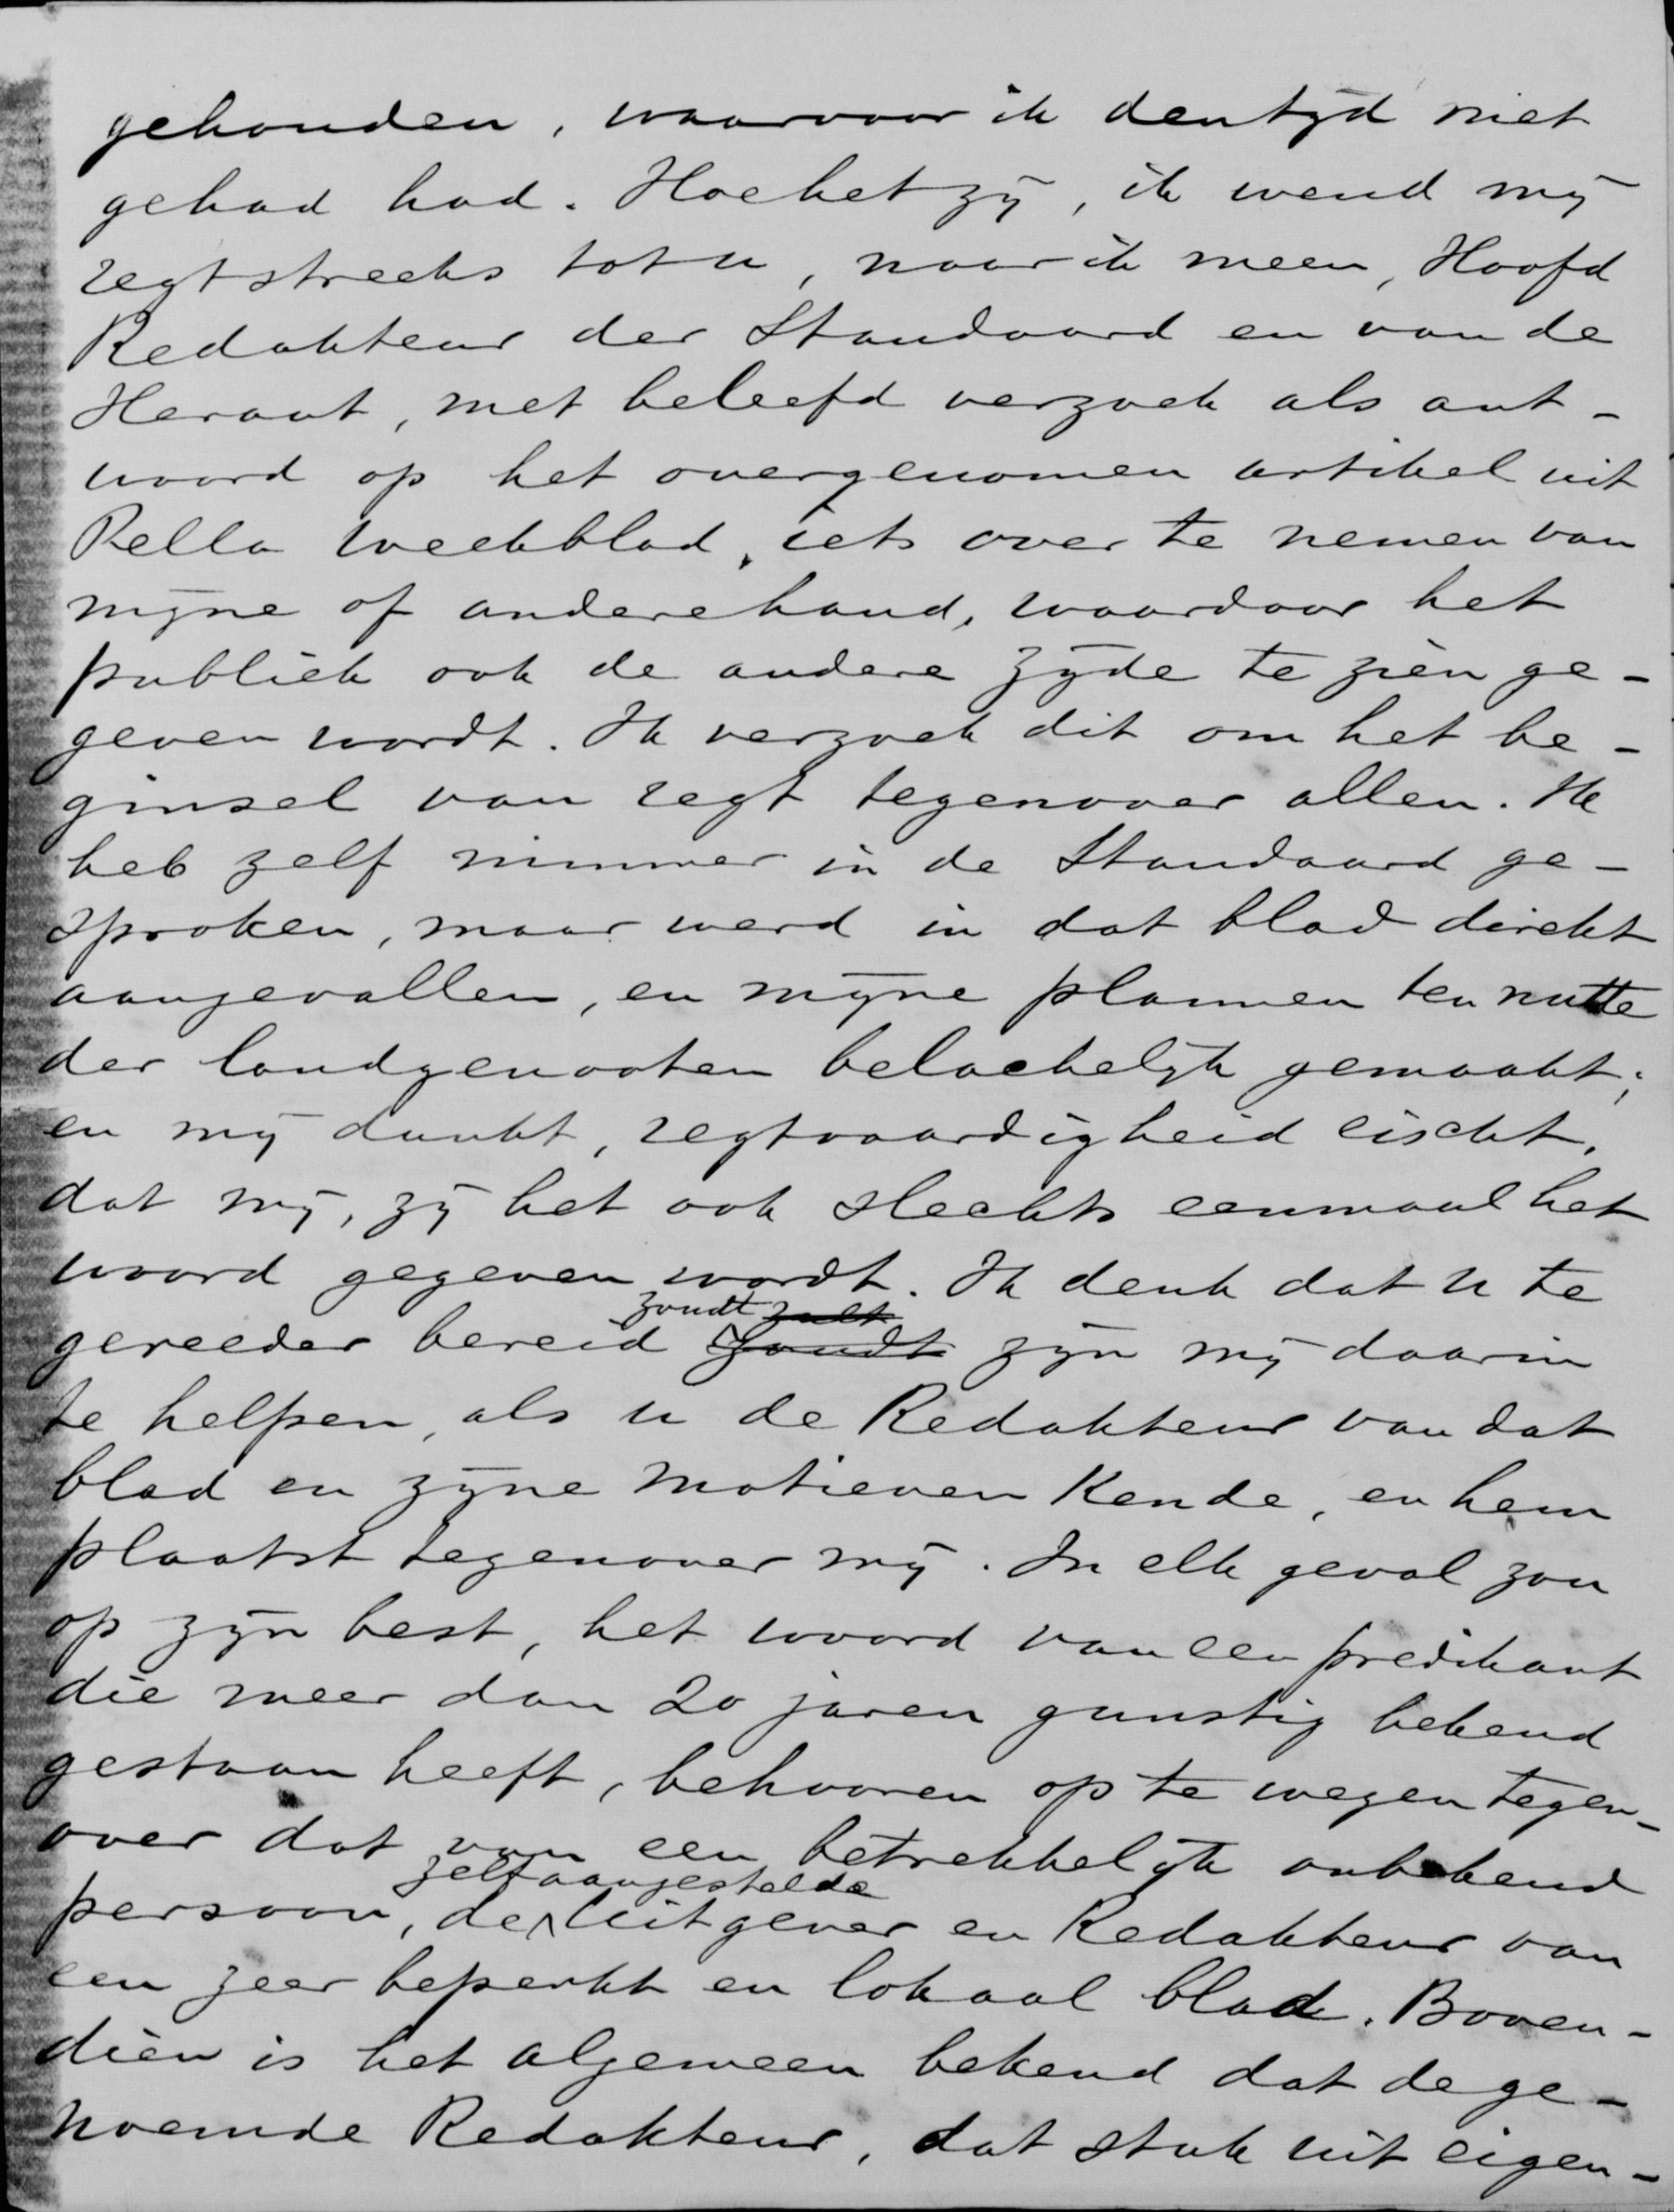 gehouden, waarvoor ik den tyd niet
gehad had. Hoe het zy, ik wend my
regtstreeks tot u, naar ik meen, Hoofd
Redakteur der Standaard en van de
Heraut, met beleefd verzoek als ant-
woord op het overgenomen artikel uit
Pella Weekblad, iets over te nemen van
myne of andere hand, waardoor het
publiek ook de andere zyde te zien ge-
geven wordt. Ik verzoek dit om het be-
ginsel van regt tegenover allen. Ik
heb zelf nimmer in de Standaard ge-
sproken, maar werd in dat blad direkt
aangevallen, en myne plannen ten nutte
der landgenooten belachelyk gemaakt;
en my dunkt, regtvaardigheid eischt,
dat my, zy het ook slechts eenmaal het
woord gegeven wordt. Ik denk dat u te
zoudt zult
gereeder bereid zoudt zyn my daarin
te helpen, als u de Redakteur van dat
blad en zyne motieven kende, en hem
plaatst tegenover my. In elk geval zou
op zyn best, het woord van een predikant
die meer dan 20 jaren gunstig bekend
gestaan heeft, behooren op te wegen tegen-
over dat van een betrekkelyk onbekend
zelfaangestelde
persoon, de uitgever en Redakteur van
een zeer beperkt en lokaal blad. Boven-
dien is het algemeen bekend dat de ge-
noemde Redakteur, dat stuk uit eigen-